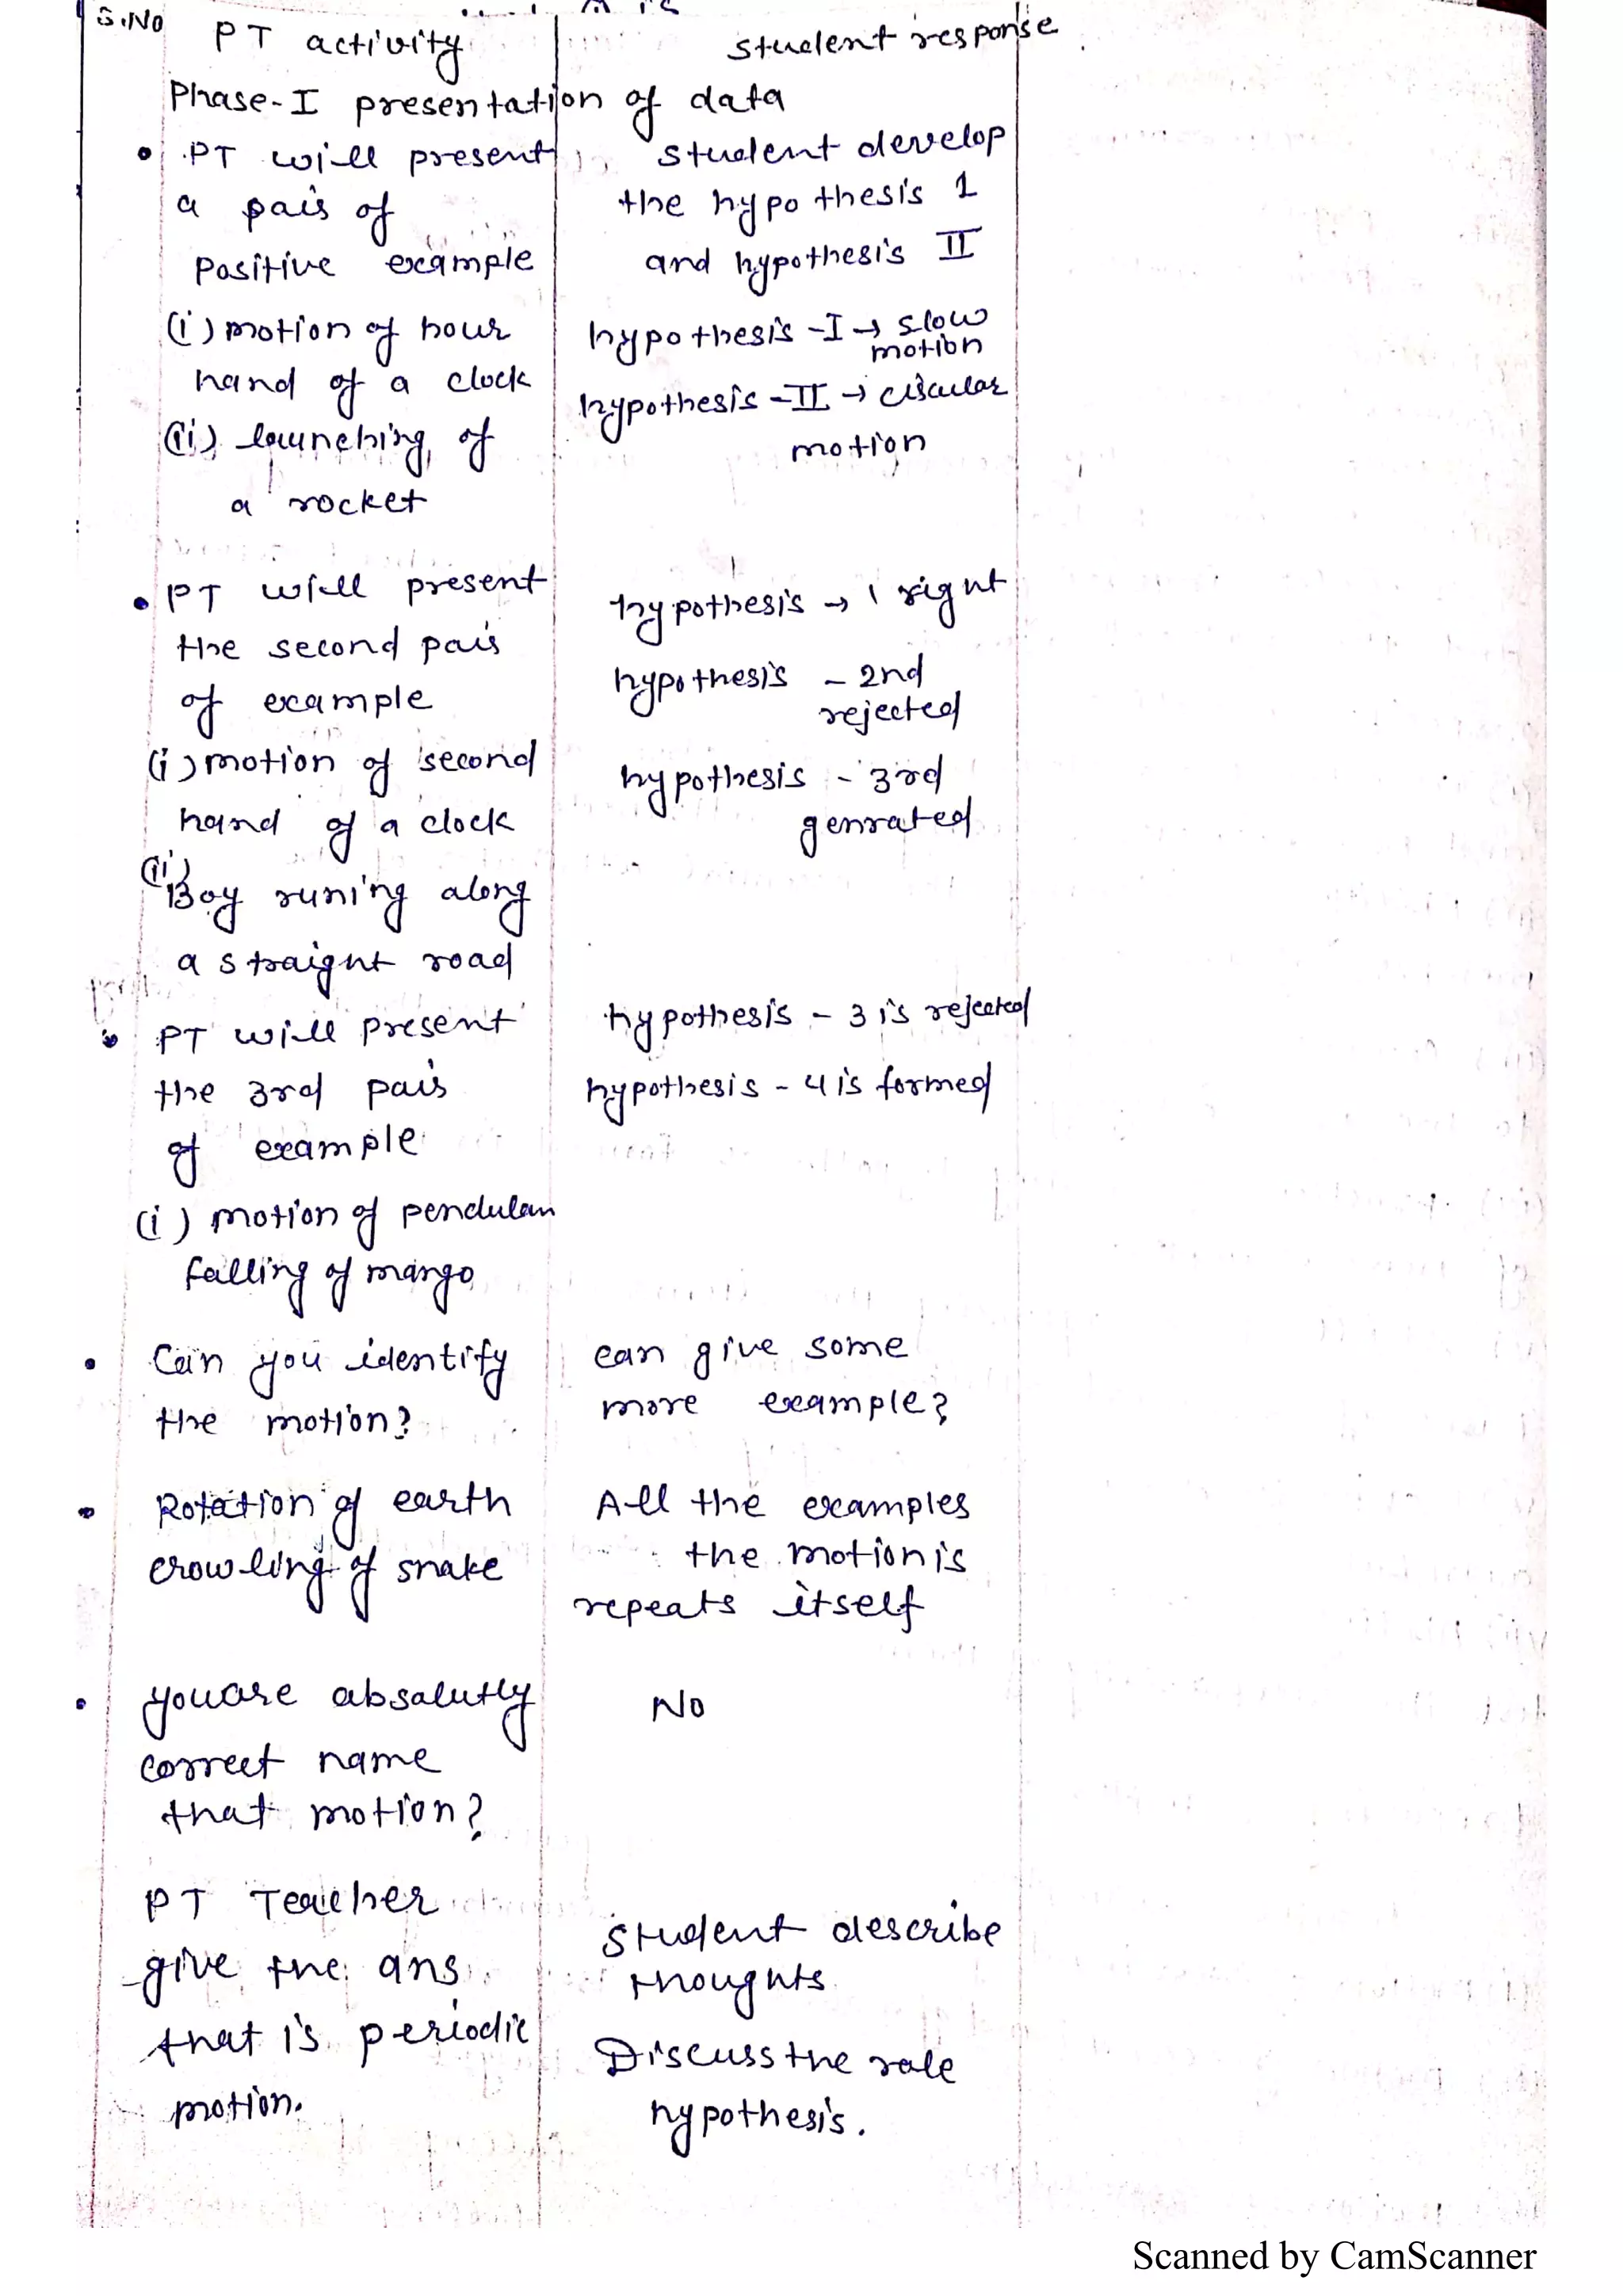 S.No PT activity student response
Phase-I presentation of data
• PT will present
a pair of
Positive example
(i) motion of hour
hand of a clock
(ii) launching of
a rocket
student develop
the hypothesis 1
and hypothesis II
hypothesis -I → slow
motion
hypothesis -II → circular
motion
• PT will present
the second pair
of example
(i) motion of second
hand of a clock
(ii)
Boy runing along
a straight road
hypothesis → 1 right
hypothesis - 2nd
rejected
hypothesis - 3rd
genrated
• PT will present
the 3rd pair
of example
(i) motion of pendulam
falling of mango
hypothesis - 3 is rejected
hypothesis - 4 is formed
• Can you identify
the motion?
can give some
more example?
• Rotation of earth
crowling of snake
All the examples
the motion is
repeats itself
• you are absalutly
correct name
that motion?
No
PT Teacher
give the ans
that is periodic
motion.
student describe
thoughts
Discuss the role
hypothesis.
Scanned by CamScanner